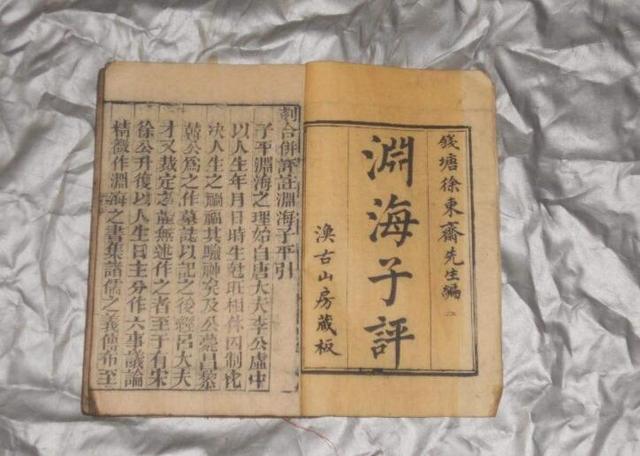 錢塘徐東齋先生編
淵海子評
漁古山房藏板
刻合併評註淵海子平引
子平淵海之理始自唐大夫李公虛中
以人生年月日時生尅旺相休囚制化
決人生之禍福其驗神矣及公薨昌黎
韓公爲之作墓誌以記之後經呂大夫
才又裁定之並無述作之者至于有宋
徐公升復以人生日主分作六事議論
精微作淵海之書集諸儒之義傳布至